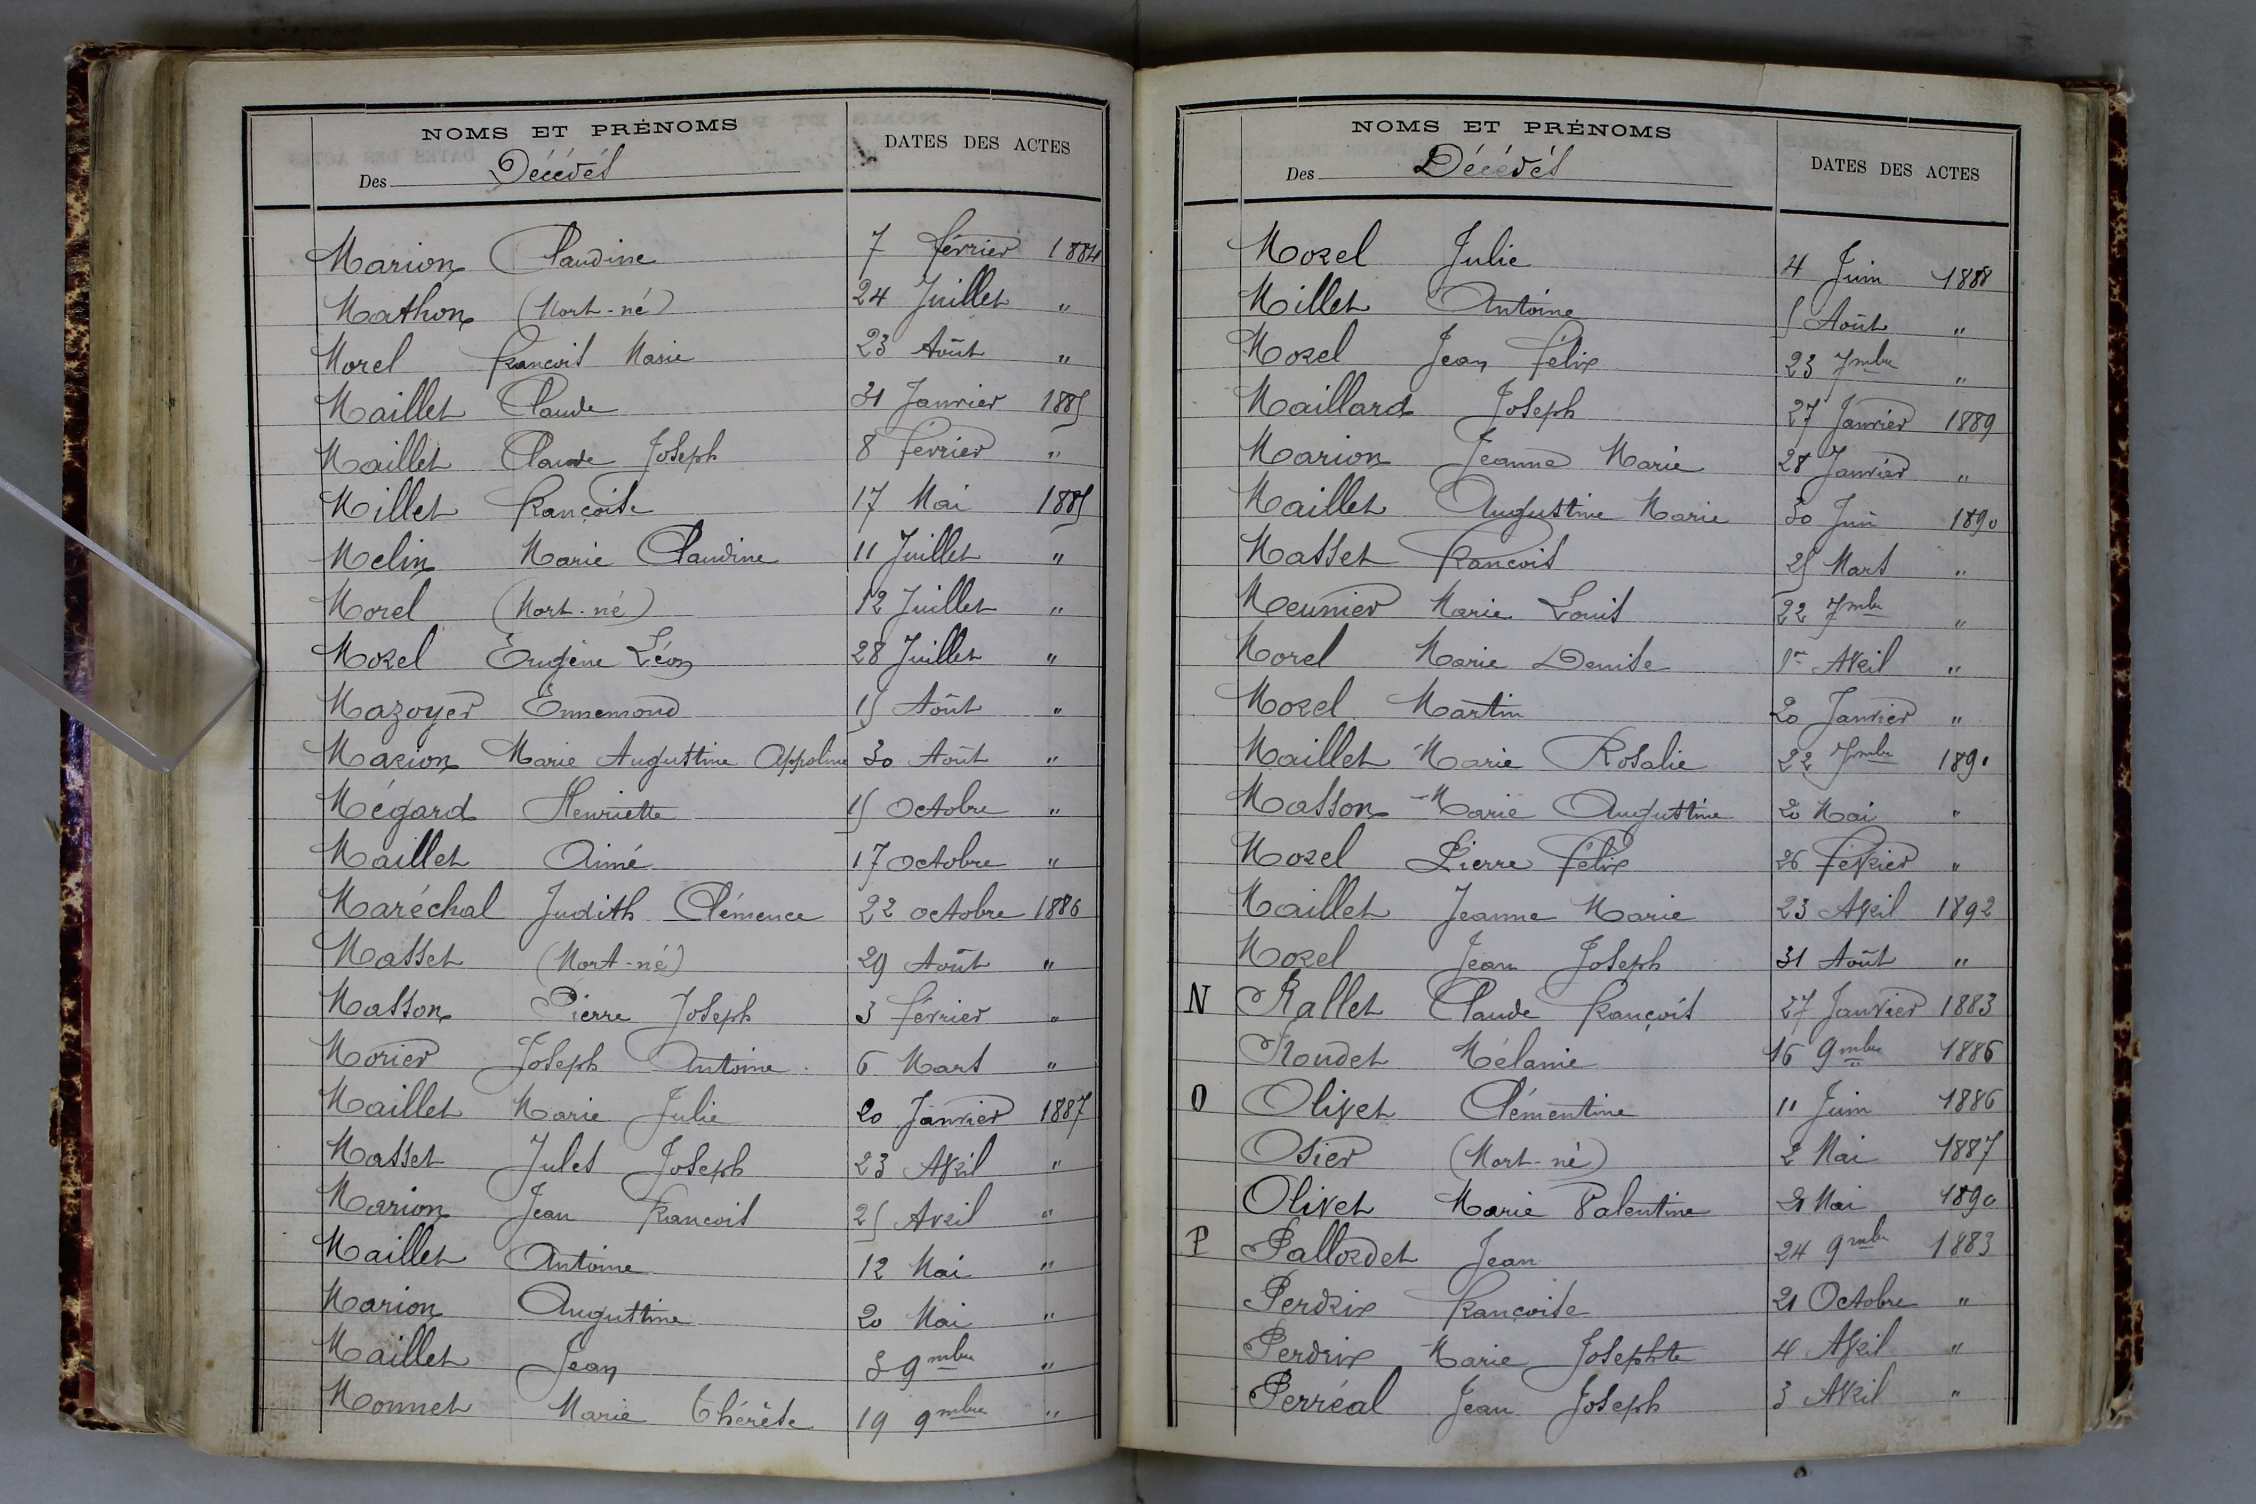 NOMS ET PRÉNOMS
Des Décédés
DATES DES ACTES
Marion Claudine 7 février 1884
Mathon (Mort-né) 24 Juillet "
Morel François Marie 23 Août "
Maillet Claude 31 Janvier 1885
Maillet Claude Joseph 8 février "
Millet Françoise 17 Mai 1885
Melin Marie Claudine 11 Juillet "
Morel (Mort-né) 12 Juillet "
Morel Eugène Léon 28 Juillet "
Mazoyer Ennemond 15 Août "
Marion Marie Augustine Appoline 30 Août "
Mégard Henriette 15 Octobre "
Maillet Aimé 17 Octobre "
Maréchal Judith Clémence 22 octobre 1886
Masset (Mort-né) 29 Août "
Masson Pierre Joseph 3 février "
Morier Joseph Antoine 6 Mars "
Maillet Marie Julie 20 Janvier 1887
Masset Jules Joseph 23 Avril "
Marion Jean François 25 Avril "
Maillet Antoine 12 Mai "
Marion Augustine 20 Mai "
Maillet Jean 3 9mbre "
Monnet Marie Thérèse 19 9mbre "
NOMS ET PRÉNOMS
Des Décédés
DATES DES ACTES
Morel Julie 4 Juin 1888
Millet Antoine 5 Août "
Morel Jean Félix 23 7mbre "
Maillard Joseph 27 Janvier 1889
Marion Jeanne Marie 28 Janvier "
Maillet Augustine Marie 30 Juin 1890
Masset François 25 Mars "
Meunier Marie Louis 22 7mbre "
Morel Marie Denise 1er Avril "
Morel Martin 20 Janvier "
Maillet Marie Rosalie 22 7mbre 1891
Masson Marie Augustine 20 Mai "
Morel Pierre Félix 26 Février "
Maillet Jeanne Marie 23 Avril 1892
Morel Jean Joseph 31 Août "
N Nallet Claude François 27 Janvier 1883
Noudet Mélanie 16 9mbre 1886
O Olivet Clémentine 11 Juin 1886
Osier (Mort-né) 2 Mai 1887
Olivet Marie Valentine 21 Mai 1890
P Pallordet Jean 24 9mbre 1883
Perdrix Françoise 21 Octobre "
Perdrix Marie Josephte 4 Avril "
Perréal Jean Joseph 3 Avril "